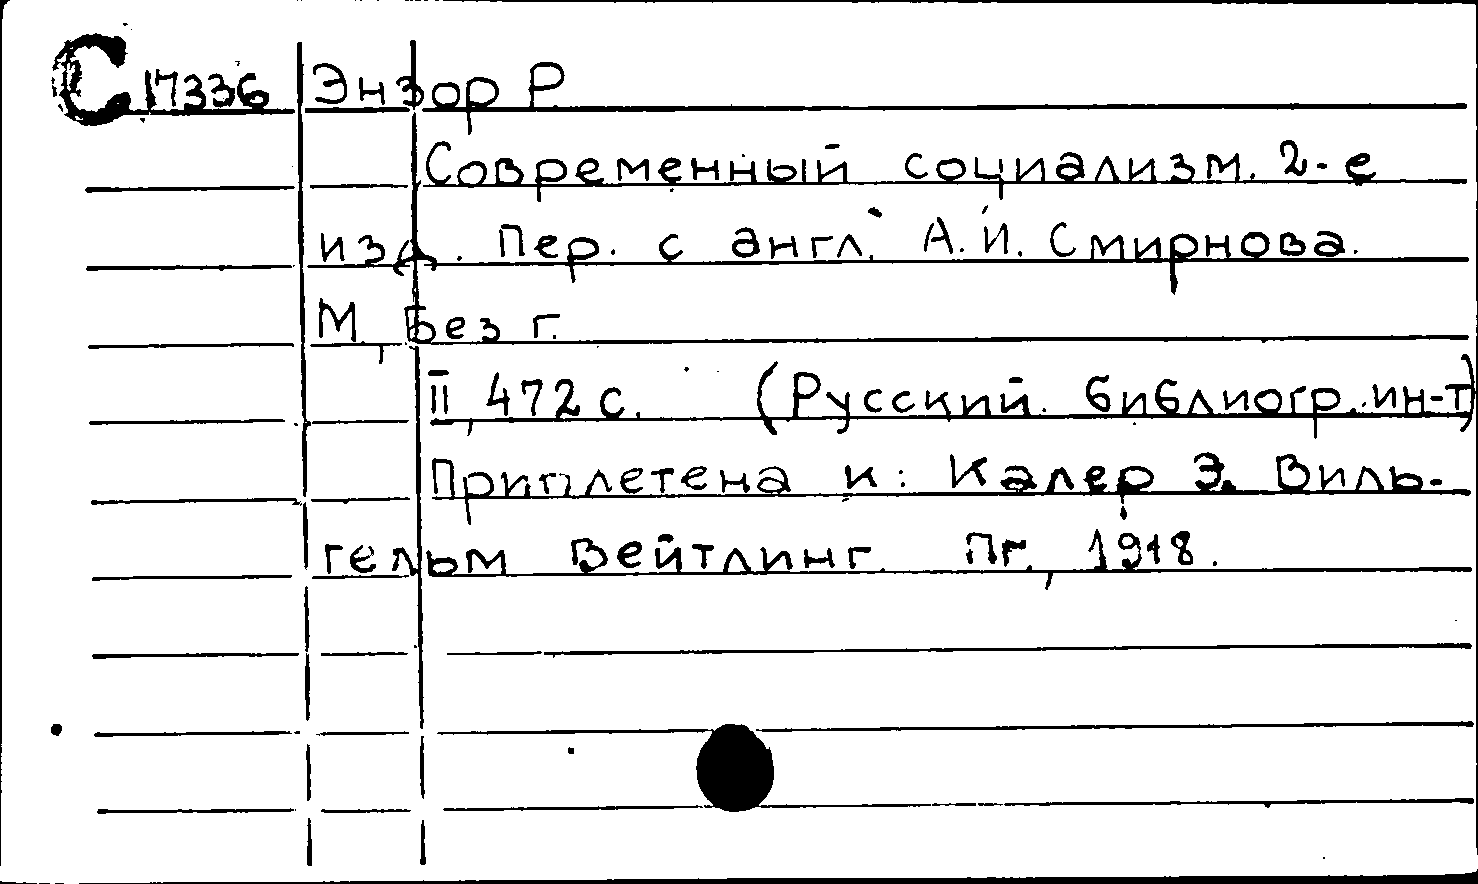 С 17336 Энзор Р
Современный социализм. 2-е
изд. Пер. с англ. А. И. Смирнова.
М., Без г.
II, 472 с. (Русский библиогр. ин-т)
Приплетена к: Калер Э. Виль-
гельм Вейтлинг. Пг., 1918.